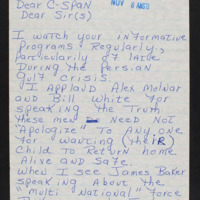 Dear C-SPAN
NOV 8 
Dear Sir(s)
I watch your informative
Programs Regularly,
particularily of late
During the Persian
Gulf Crisis.
I applaud Alex Molnar
and Bill White for
speaking the Truth
these men NEED NOT
"Apologize" To Any one
For wanting (theIR)
Child To Return home
Alive and Safe.
When I see James Baker
speaking About the
"Multi National" Force